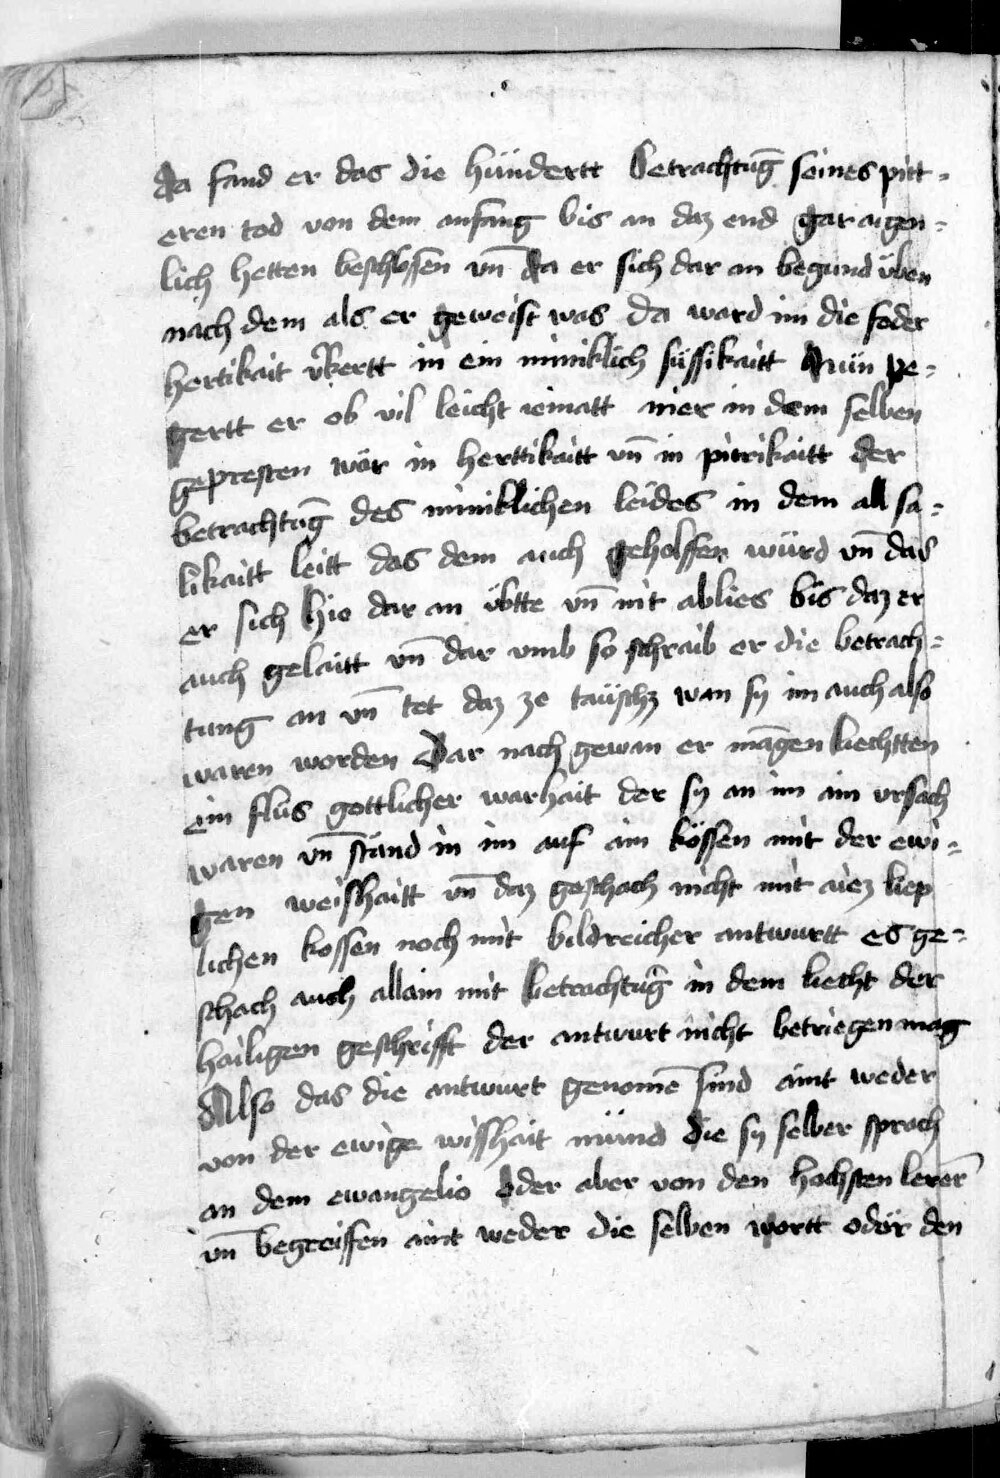 da fand er das die hündertt betrachtūg seines pitt-
eren tod von dem anfang bis an daz end gar aigen-
lich hetten beschlossen vn̄ da er sich dar an begund üben
nach dem als er geweist was da ward im die foder
hertikait v̄kertt in ein miniklich süssikaitt Nün pe-
gertt er ob vil leicht iematt mer in dem selben
gepresten wär in herttikaitt vn̄ in pitrikaitt der
betrachtūg des miniklichen leides in dem all sa-
likaitt leitt das dem auch geholffen würd vn̄ das
er sich hie dar an übtte vn̄ nit ablies bis daz er
auch gelaitt vn̄ dar vmb so schraib er die betrach-
tung an vn̄ tet daz ze taüschz wan sy im auch also
waren worden Dar nach gewan er māgen liechtten
ein flus gottlicher warhait der sy an im ain vrsach
waren vn̄ stünd in im auf ain kössen mit der ewi-
gen weishaitt vn̄ daz geschach nicht mit liep
lichen kossen noch mit bildreicher antwurtt es ge-
schach auch allain mit betrachtūg in dem liecht der
hailigen geschrifft der antwurt nicht betriegen mag
Also das die antwurt genomē sind aint weder
von der ewige wisshait münd die sy selber sprach
an dem ewangelio oder aber von den hochsten lerer̄
vn̄ begreiffen aint weder die selben wortt odür den